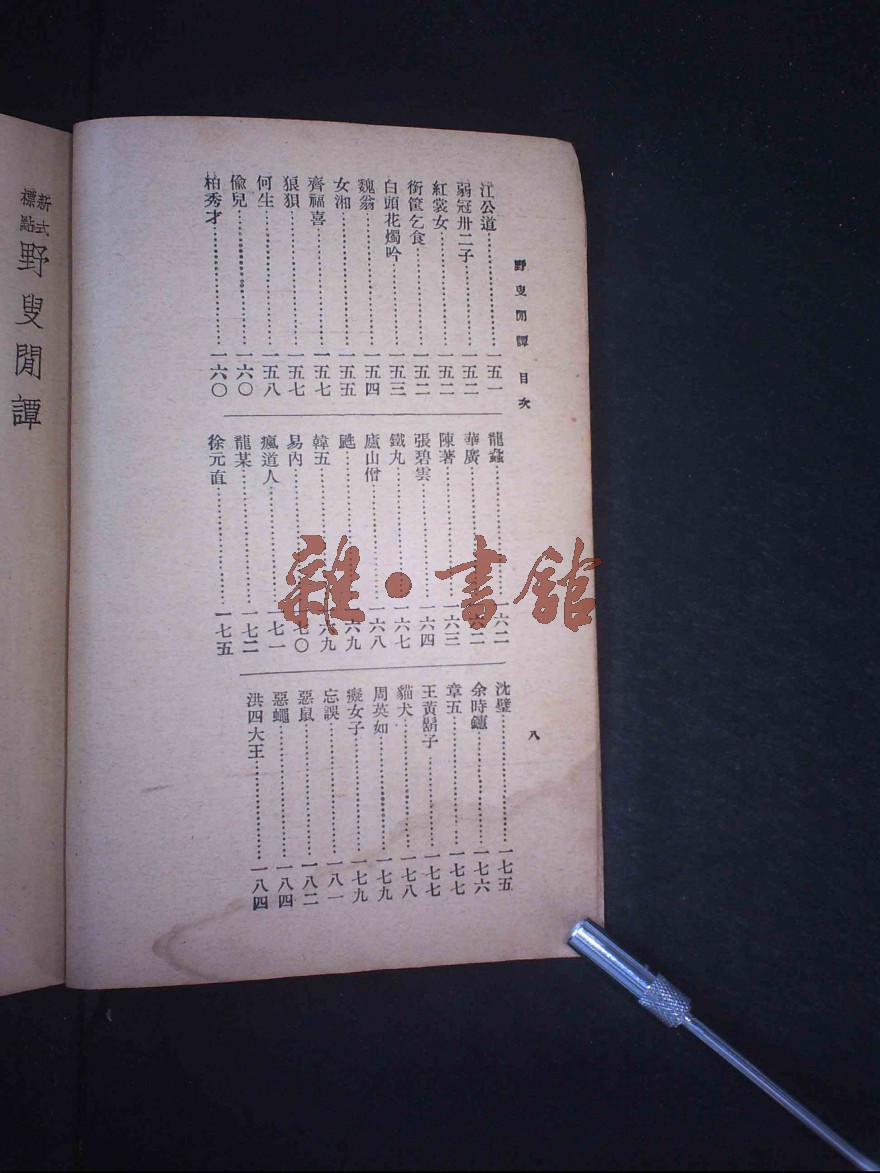 野叟閒譚 目次
八
江公道……一五一
弱冠卅二子……一五二
紅裳女……一五二
銜筐乞食……一五二
白頭花燭吟……一五三
魏翁……一五四
女湘……一五五
齊福喜……一五七
狼狽……一五七
何生……一五八
偷兒……一六〇
柏秀才……一六〇
龍蠡……一六二
華廣……一六二
陳著……一六三
張碧雲……一六四
鐵丸……一六七
廬山僧……一六八
……一六九
韓五……一六九
易內……一七〇
瘋道人……一七一
龍某……一七二
徐元直……一七五
沈璧……一七五
余時鏸……一七六
章五……一七七
王黃鬍子……一七七
貓犬……一七八
周英如……一七九
癡女子……一七九
忘誤……一八一
惡鼠……一八二
惡蠅……一八四
洪四大王……一八四
新式
標點
野叟閒譚
雜·書館